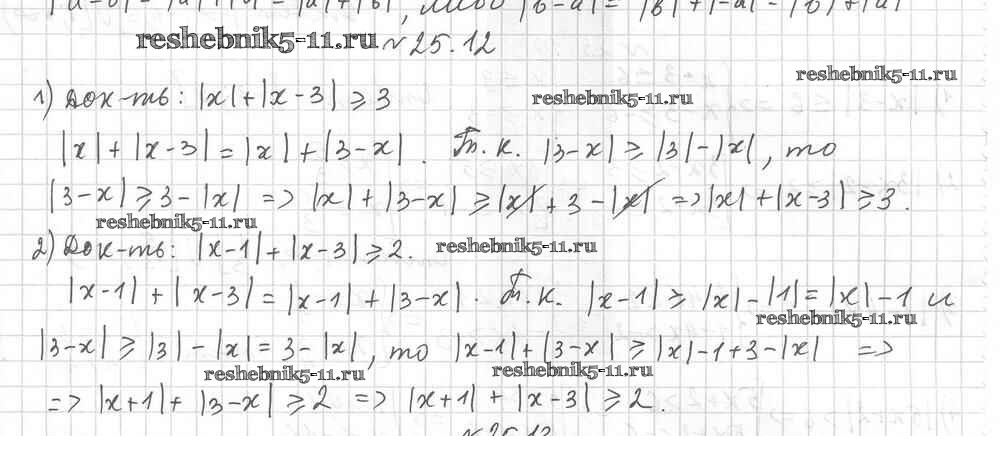 reshebnik5-11.ru №25.12
reshebnik5-11.ru
1) Док-ть: |x|+|x-3| ⩾ 3
reshebnik5-11.ru
|x|+|x-3| = |x|+|3-x|. Т.к. |3-x| ⩾ |3|-|x|, то
|3-x| ⩾ 3-|x| => |x|+|3-x| ⩾ |x|+3-|x| => |x|+|x-3| ⩾ 3.
reshebnik5-11.ru
2) Док-ть: |x-1|+|x-3| ⩾ 2.
reshebnik5-11.ru
|x-1|+|x-3| = |x-1|+|3-x|. Т.к. |x-1| ⩾ |x|-|1| = |x|-1 и
reshebnik5-11.ru
|3-x| ⩾ |3|-|x| = 3-|x|, то |x-1|+|3-x| ⩾ |x|-1+3-|x| =>
reshebnik5-11.ru
reshebnik5-11.ru
=> |x+1|+|3-x| ⩾ 2 => |x+1|+|x-3| ⩾ 2.